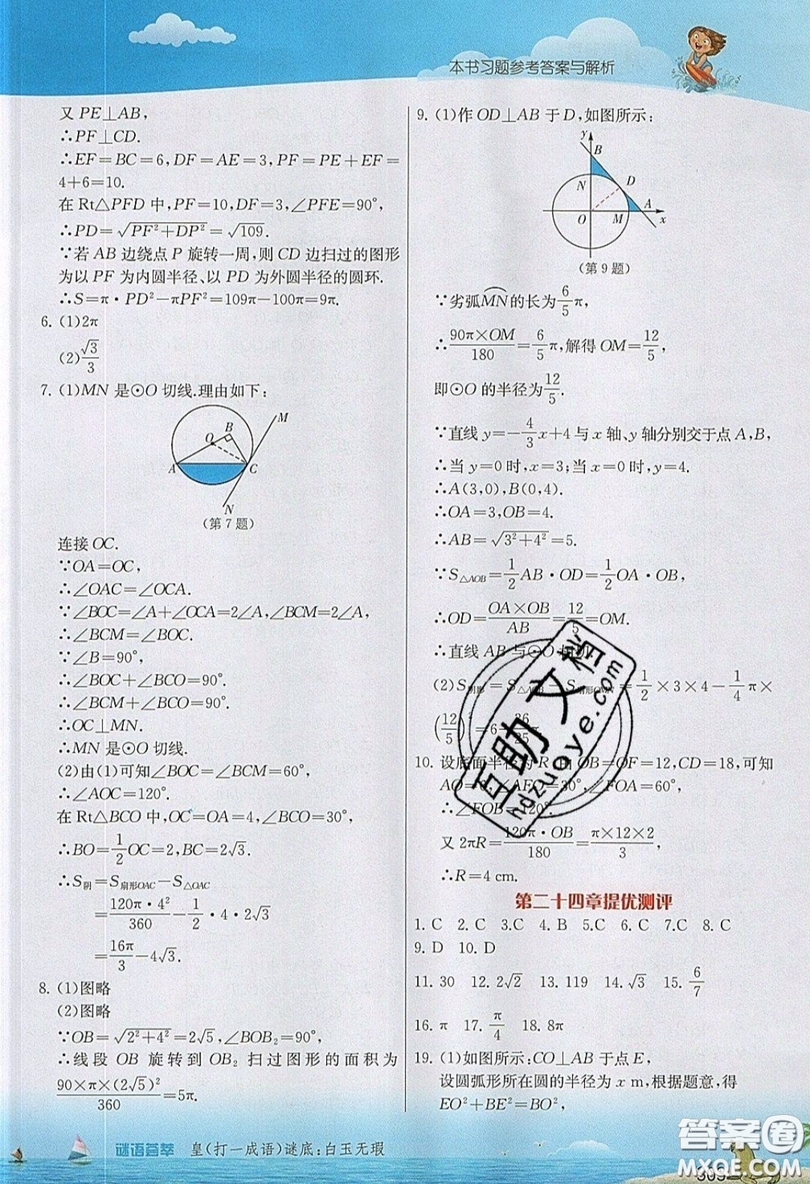 本书习题参考答案与解析
又 PE⊥AB,
∴PF⊥CD.
∴EF=BC=6,DF=AE=3,PF=PE+EF=
4+6=10.
在 Rt△PFD 中,PF=10,DF=3,∠PFE=90°,
∴PD=√(PF²+DP²)=√109.
∵若 AB 边绕点 P 旋转一周,则 CD 边扫过的图形
为以 PF 为内圆半径、以 PD 为外圆半径的圆环.
∴S=π·PD²-πPF²=109π-100π=9π.
6. (1)2π
(2)√3/3
7. (1)MN 是⊙O 切线.理由如下:
M
B
O
A
C
N
(第 7 题)
连接 OC.
∵OA=OC,
∴∠OAC=∠OCA.
∵∠BOC=∠A+∠OCA=2∠A,∠BCM=2∠A,
∴∠BCM=∠BOC.
∵∠B=90°,
∴∠BOC+∠BCO=90°.
∴∠BCM+∠BCO=90°.
∴OC⊥MN.
∴MN 是⊙O 切线.
(2)由(1)可知∠BOC=∠BCM=60°,
∴∠AOC=120°.
在 Rt△BCO 中,OC=OA=4,∠BCO=30°,
∴BO=1/2 OC=2,BC=2√3.
∴S阴=S扇形OAC-S△OAC
=120π·4²/360-1/2·4·2√3
=16π/3-4√3.
8. (1)图略
(2)图略
∵OB=√(2²+4²)=2√5,∠BOB₂=90°,
∴线段 OB 旋转到 OB₂ 扫过图形的面积为
90×π×(2√5)²/360=5π.
9. (1)作 OD⊥AB 于 D,如图所示:
y
B
N
D
O
M
A
x
(第 9 题)
∵劣弧MN的长为6/5π,
∴90π×OM/180=6/5π,解得 OM=12/5,
即⊙O 的半径为12/5.
∵直线 y=-4/3x+4 与 x 轴、y 轴分别交于点 A,B,
∴当 y=0 时,x=3;当 x=0 时,y=4.
∴A(3,0),B(0,4).
∴OA=3,OB=4.
∴AB=√(3²+4²)=5.
∵S△AOB=1/2AB·OD=1/2OA·OB,
∴OD=OA×OB/AB=12/5=OM.
∴直线 AB 与⊙O
(2)S阴影=S△AOB-S扇形OMN=1/2×3×4-1/4π×
(12/5)²=6-36/25
10. 设底面半径为 R,由 OB=OF=12,CD=18,可知
30°,∠FOA=60°,
又 2πR=120π·OB/180=π×12×2/3,
∴R=4 cm.
第二十四章提优测评
1. C 2. C 3. C 4. B 5. C 6. C 7. C 8. C
9. D 10. D
11. 30 12. 2√2 13. 119 14. 45 15. 6/7
16. π 17. π/4 18. 8π
19. (1)如图所示:CO⊥AB 于点 E,
设圆弧形所在圆的半径为 x m,根据题意,得
EO²+BE²=BO²,
谜语荟萃 皇(打一成语)谜底:白玉无瑕
互助文档
hdzuoye.com
答案圈
MXQE.COM